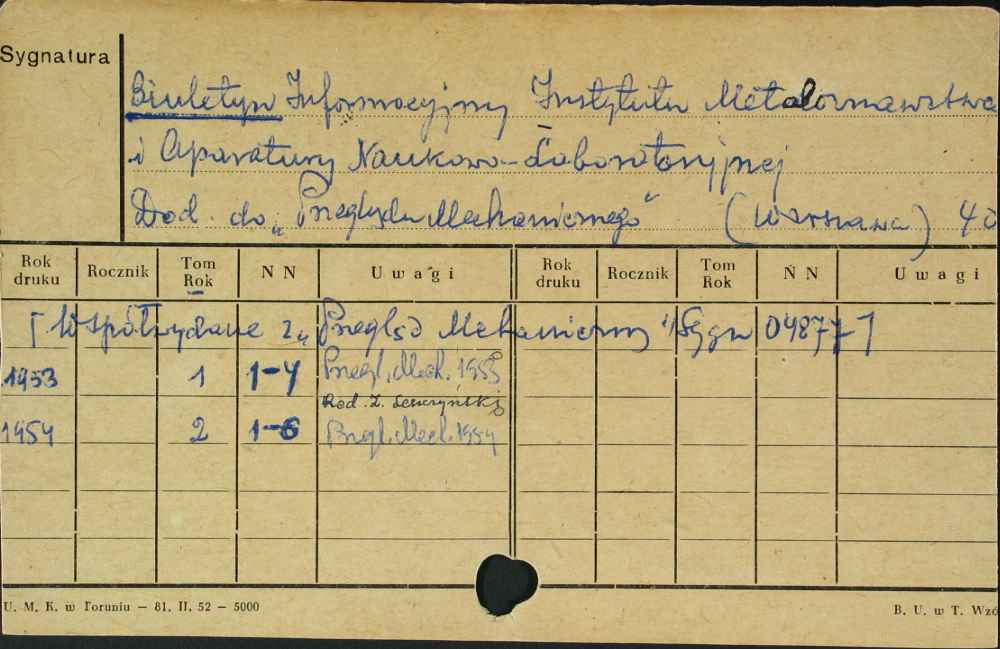 Sygnatura
Biuletyn Informacyjny Instytutu Metaloznawstwa
i Aparatury Naukowo-Laboratoryjnej
Dod. do „Przeglądu Mechanicznego" (Warszawa) 40
Rok druku Rocznik Tom Rok N N Uwagi Rok druku Rocznik Tom Rok N N Uwagi
[Współwydane z „Przegląd Mechaniczny" Sygn 04877]
1953 1 1-4 Przegl. Mech. 1953
Red. Z. Leszczyński
1954 2 1-6 Przegl. Mech. 1954
U. M. K. w Toruniu — 81. II. 52 — 5000 B. U. w T. Wzó